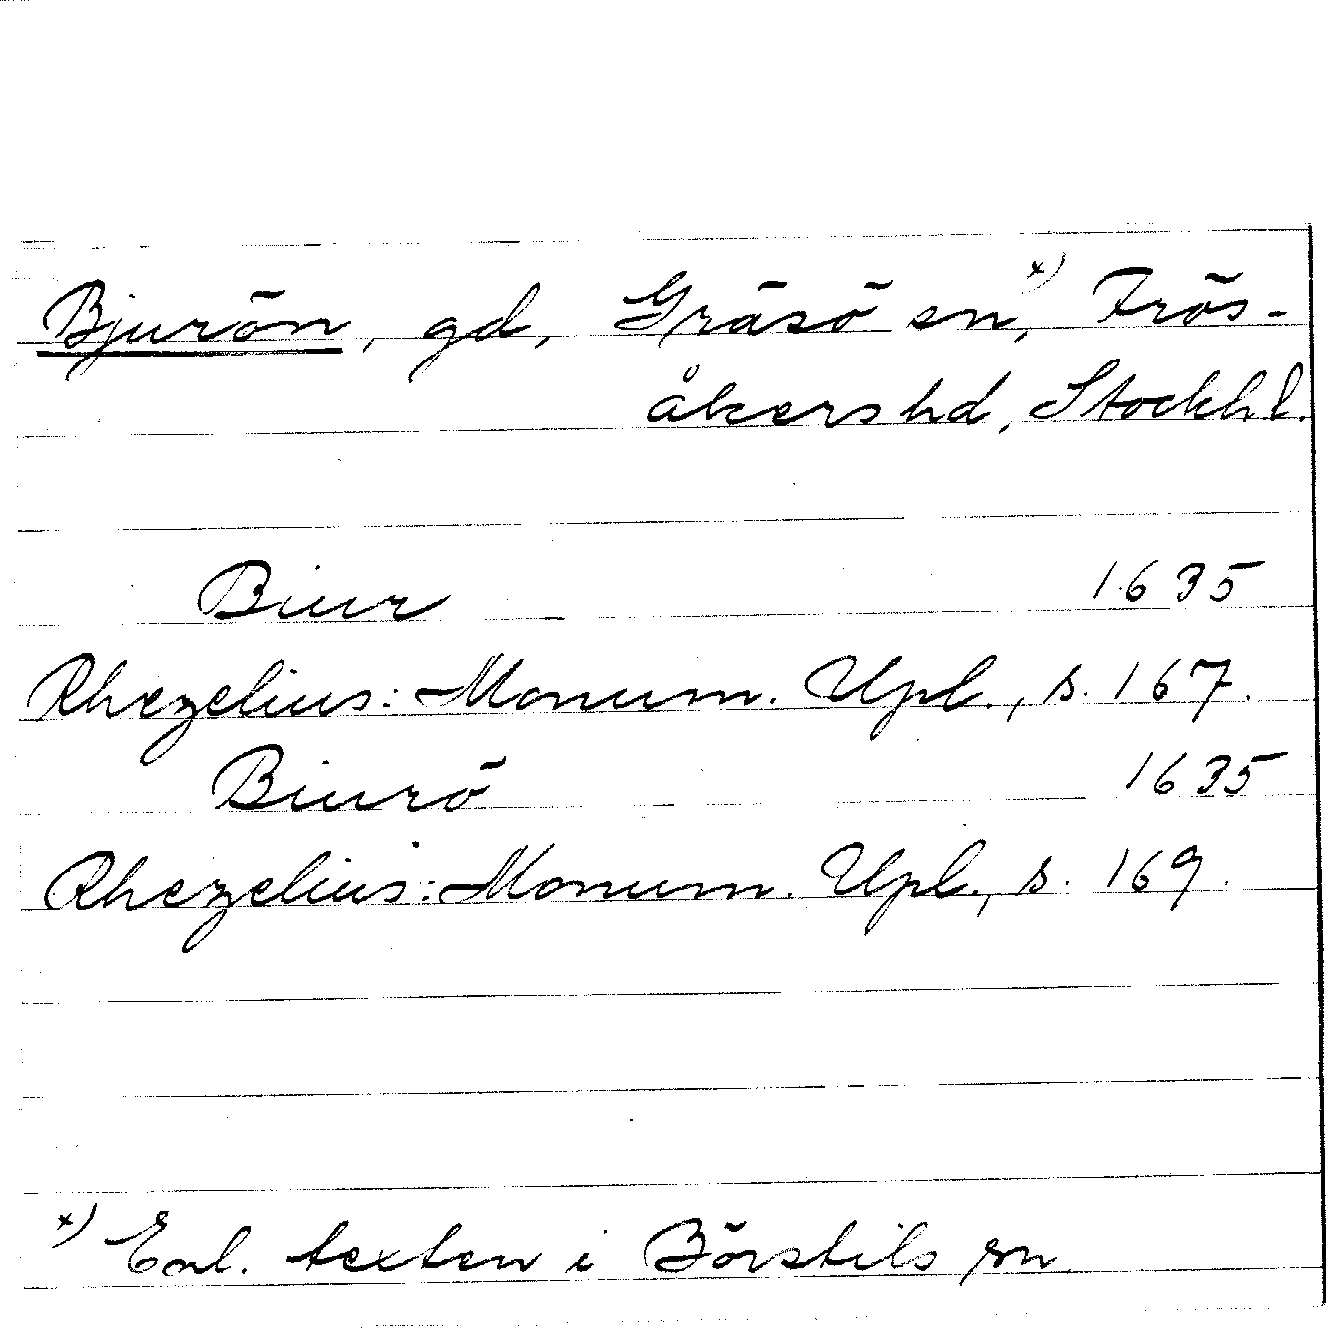 Bjurön, gd, Gräsö sn,x) Frös-
åkers hd, Stockh. l.
Biur 1635
Rhezelius: Monum. Upl., s. 167.
Biurö 1635
Rhezelius: Monum. Upl., s. 169.
x) Enl. texten i Börstils sn